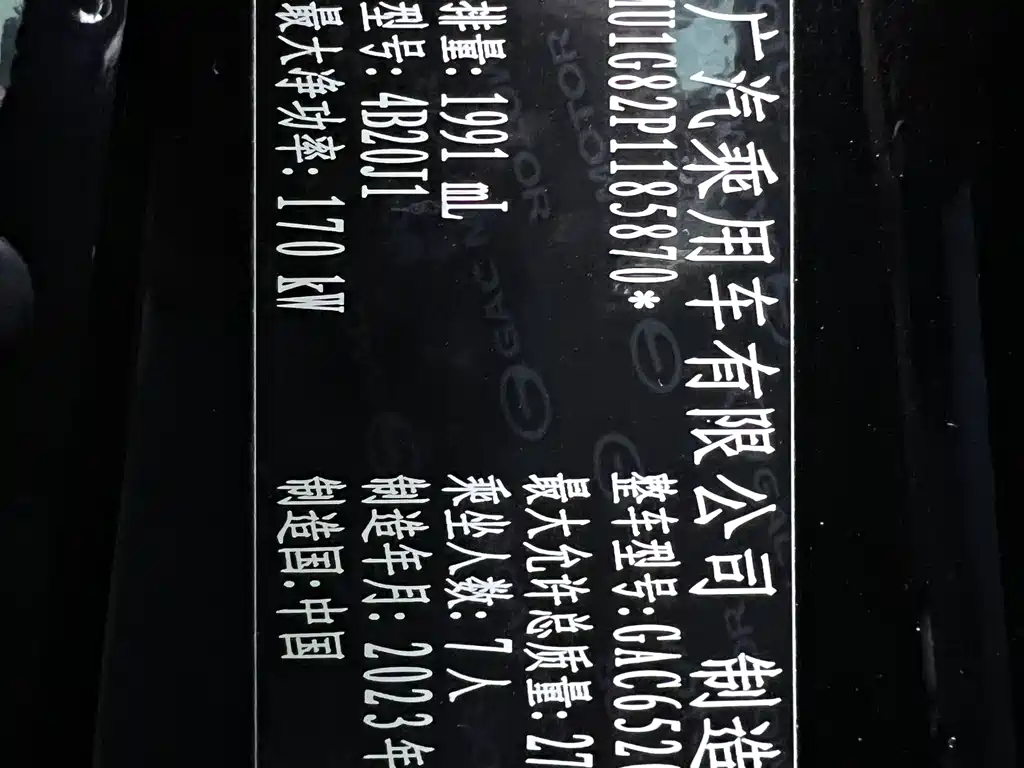 广汽乘用车有限公司 制造
MU1G82P1185870* 整车型号:GAC652
最大允许总质量: 27
排量: 1991 mL 乘坐人数: 7人
型号: 4B20J1 制造年月: 2023年
最大净功率: 170 kW 制造国: 中国